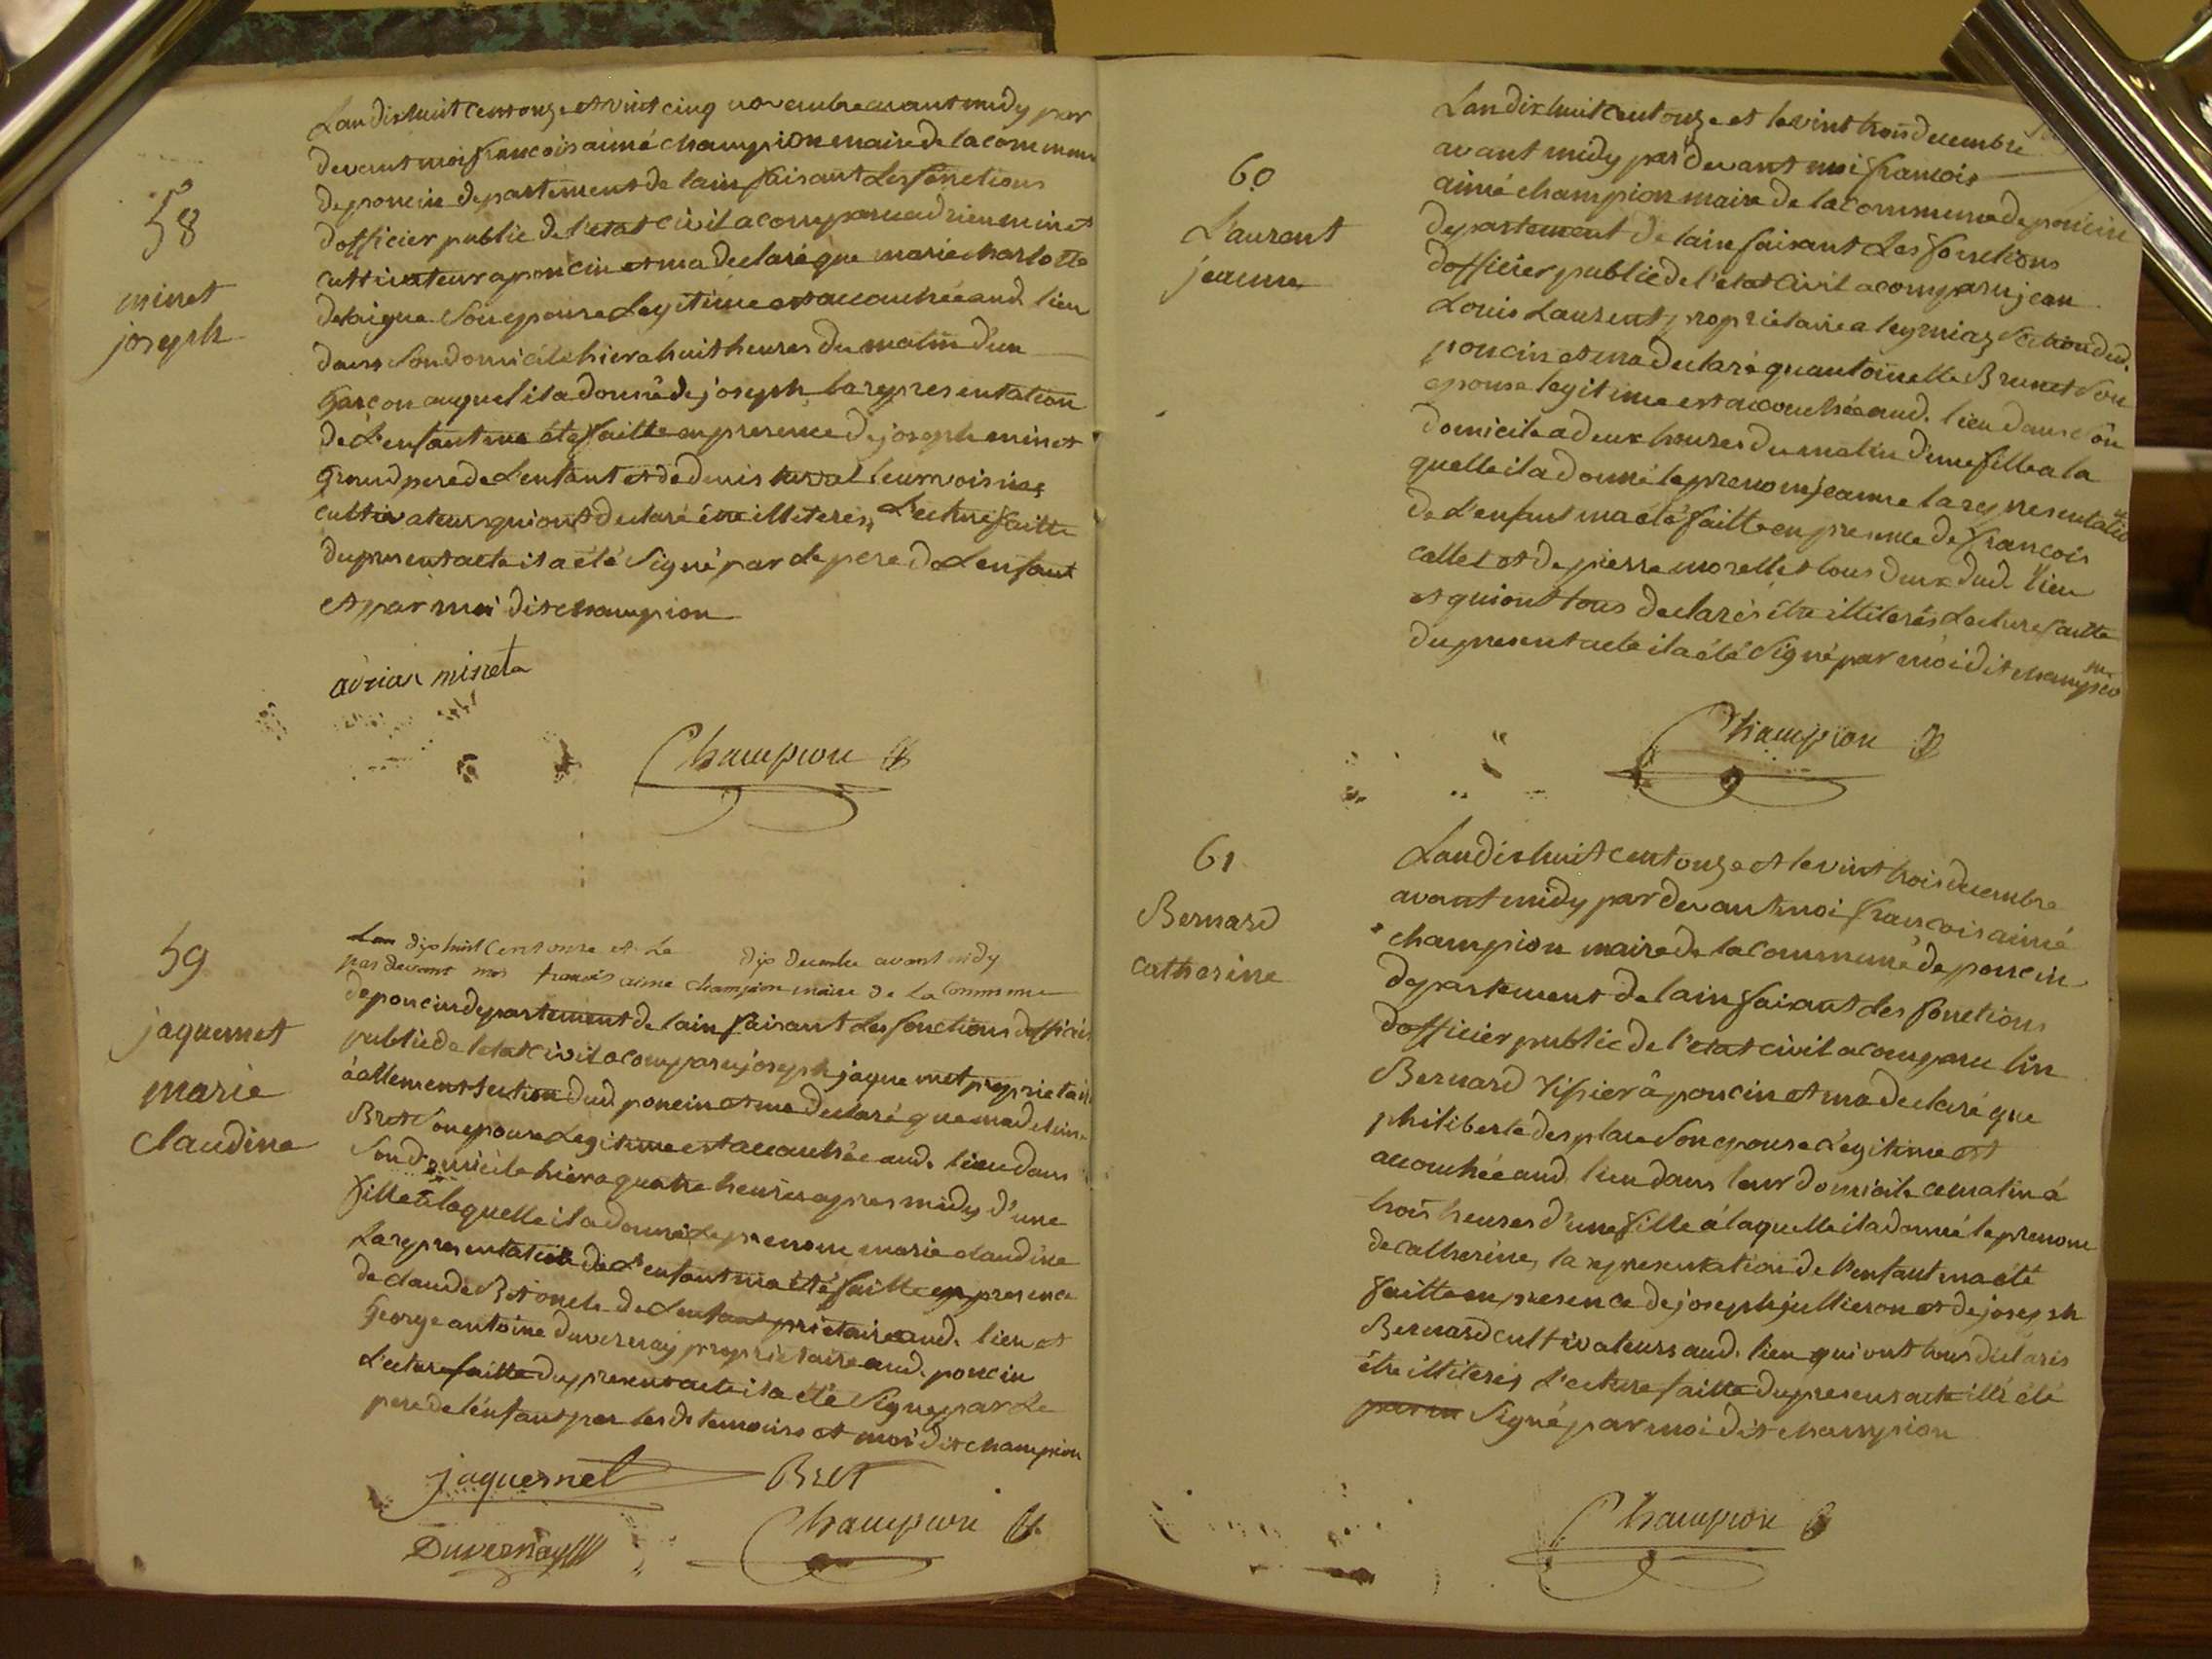 58
minet
joseph
Lan dixhuit cent onze et vint cinq novembre avant midy par
devant moi francois aimé champion maire de la commune
de poncin departement de lain faisant les fonctions
dofficier public de l'etat civil a comparu adrien minet
cultivateur a poncin et ma declaré que marie charlotte
delaigue Son epouse Legitime est accouchée aud. lieu
dans Son domicile hier a huit heures du matin d'un
garcon auquel il a donné de joseph la representation
de L'enfant ma été faitte en presence de joseph minet
grand pere de L'enfant et de denis leurs voisins
cultivateurs qui ont declaré être illiterés, Lecture faitte
du present acte il a été Signé par le pere de L'enfant
et par moi dit champion
adrian mineta
Champion
59
jaquemet
marie
Claudine
Lan dix huit Cent onze et Le dix decembre avant midy
par devant moi francois aimé champion maire de la Commune
de poncin departement de lain faisant les fonctions dofficier
public de letat civil a comparu joseph jaquemet proprietaire
à allement section dud. poncin et ma declaré que madelaine
Bret Son epouse Legitime est accouchée aud. lieu dans
Son domicile hier a quatre heures apres midy d'une
fille à laquelle il a donné Le prenom marie claudine
La representation de L'enfant ma été faitte en presence
de claude Bret oncle de Lenfant prietaire aud. lieu et
George antoine duvernay proprietaire aud. poncin
Lecture faitte du present acte il a été Signé par Le
pere de l'enfant par les dt temoins et moi dit champion
jaquemet Bret
Duvernay
Champion
60
Laurent
jeanne
Lan dix huit cent onze et le vint trois decembre
avant midy par devant moi francois
aimé champion maire de la commune de poncin
departement de lain faisant les fonctions
dofficier public de l'etat civil a comparu jean
Louis Laurent proprietaire a leymiaz section dud.
poncin et ma declaré quantoinette Brunet Son
epouse legitime est accouchée aud. lieu dans Son
domicile a deux heures du matin d'une fille a la
quelle il a donné le prenom jeanne la representation
de L'enfant ma été faitte en presence de francois
callet et de pierre morellet tous deux dud. lieu
et qui ont tous declarés être illiterés Lecture faitte
du present acte il a été Signé par moi dit champion
Champion
61
Bernard
catherine
Lan dix huit cent onze et le vint trois decembre
avant midy par devant moi francois aimé
champion maire de la commune de poncin
departement de lain faisant les fonctions
dofficier public de l'etat civil a comparu lin
Bernard tissier à poncin et ma declaré que
philiberte desplace Son epouse Legitime est
accouchée aud. lieu dans leur domicile ce matin à
trois heures d'une fille à laquelle il a donné le prenom
de catherine, la representation de l'enfant ma été
faitte en presence de joseph jullieron et de joseph
Bernard cultivateurs aud. lieu qui ont tous declarés
être illiterés Lecture faitte du present acte il a été
par m Signé par moi dit champion
Champion